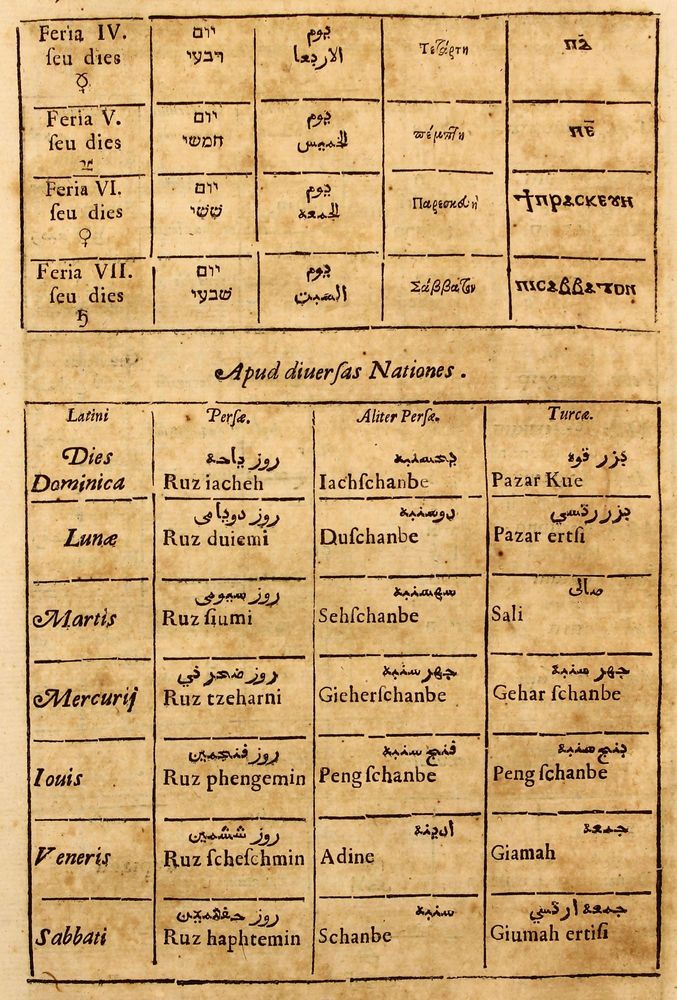 Feria IV.
ſeu dies
☿
יום
רבעי
يوم
الاربعا
Τετάρτη
ⲡⲇ̄
Feria V.
ſeu dies
♃
יום
חמשי
يوم
الخميس
πέμπτη
ⲡⲉ̄
Feria VI.
ſeu dies
♀
יום
ששי
يوم
الجمعة
ϯⲡⲣⲁⲥⲕⲉⲩⲏ
Feria VII.
ſeu dies
♄
יום
שבעי
يوم
السبت
Σάββατον
ⲡⲓⲥⲁⲃⲃⲁⲧⲟⲛ
Apud diuerſas Nationes.
Latini
Perſæ.
Aliter Perſæ.
Turcæ.
Dies
Dominica
روز
Ruz iacheh
Iachſchanbe
بزر
Pazar Kue
Lunæ
روز دويامى
Ruz duiemi
دوسنبه
Duſchanbe
بزر
Pazar ertſi
Martis
روز سيومى
Ruz ſiumi
سهسنبه
Sehſchanbe
صالى
Sali
Mercurij
روز
Ruz tzeharni
جهر سنبه
Gieherſchanbe
جهر سنبه
Gehar ſchanbe
Iouis
روز فنجمين
Ruz phengemin
فنج سنبه
Peng ſchanbe
بنج سنبه
Peng ſchanbe
Veneris
روز ششمين
Ruz ſcheſchmin
ادينه
Adine
جمعه
Giamah
Sabbati
روز
Ruz haphtemin
سنبه
Schanbe
جمعه ارتسي
Giumah ertiſi